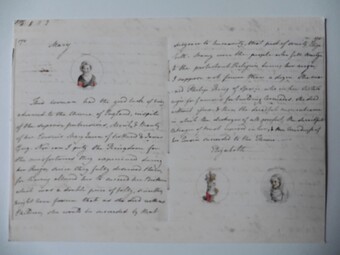 Mary
This woman had the good luck of being
advanced to the throne of England, inspite
of the superior pretensions, Merit, & Beauty
of her Cousins Mary Queen of Scotland & Jane
Grey. Nor can I pity the Kingdom for
the misfortunes they experienced during
her Reign, since they fully deserved them,
for having allowed her to succeed her Brother
which was a double peice of folly, since they
might have foreseen that as she died without
Children, she would be succeeded by that
disgrace to humanity, that pest of society, Eliza-
beth. Many were the people who fell Martyrs
to the protestant Religion during her reign;
I suppose not fewer than a dozen. She mar-
ried Philip King of Spain who in her Sister's
reign for famous for building Armadas. She died
without issue, & then the dreadful moment came
in which the destroyer of all comfort, the deceitful
Betrayer of trust reposed in her, & the Murderess of
her Cousin succeeded to the Throne.
Elizabeth